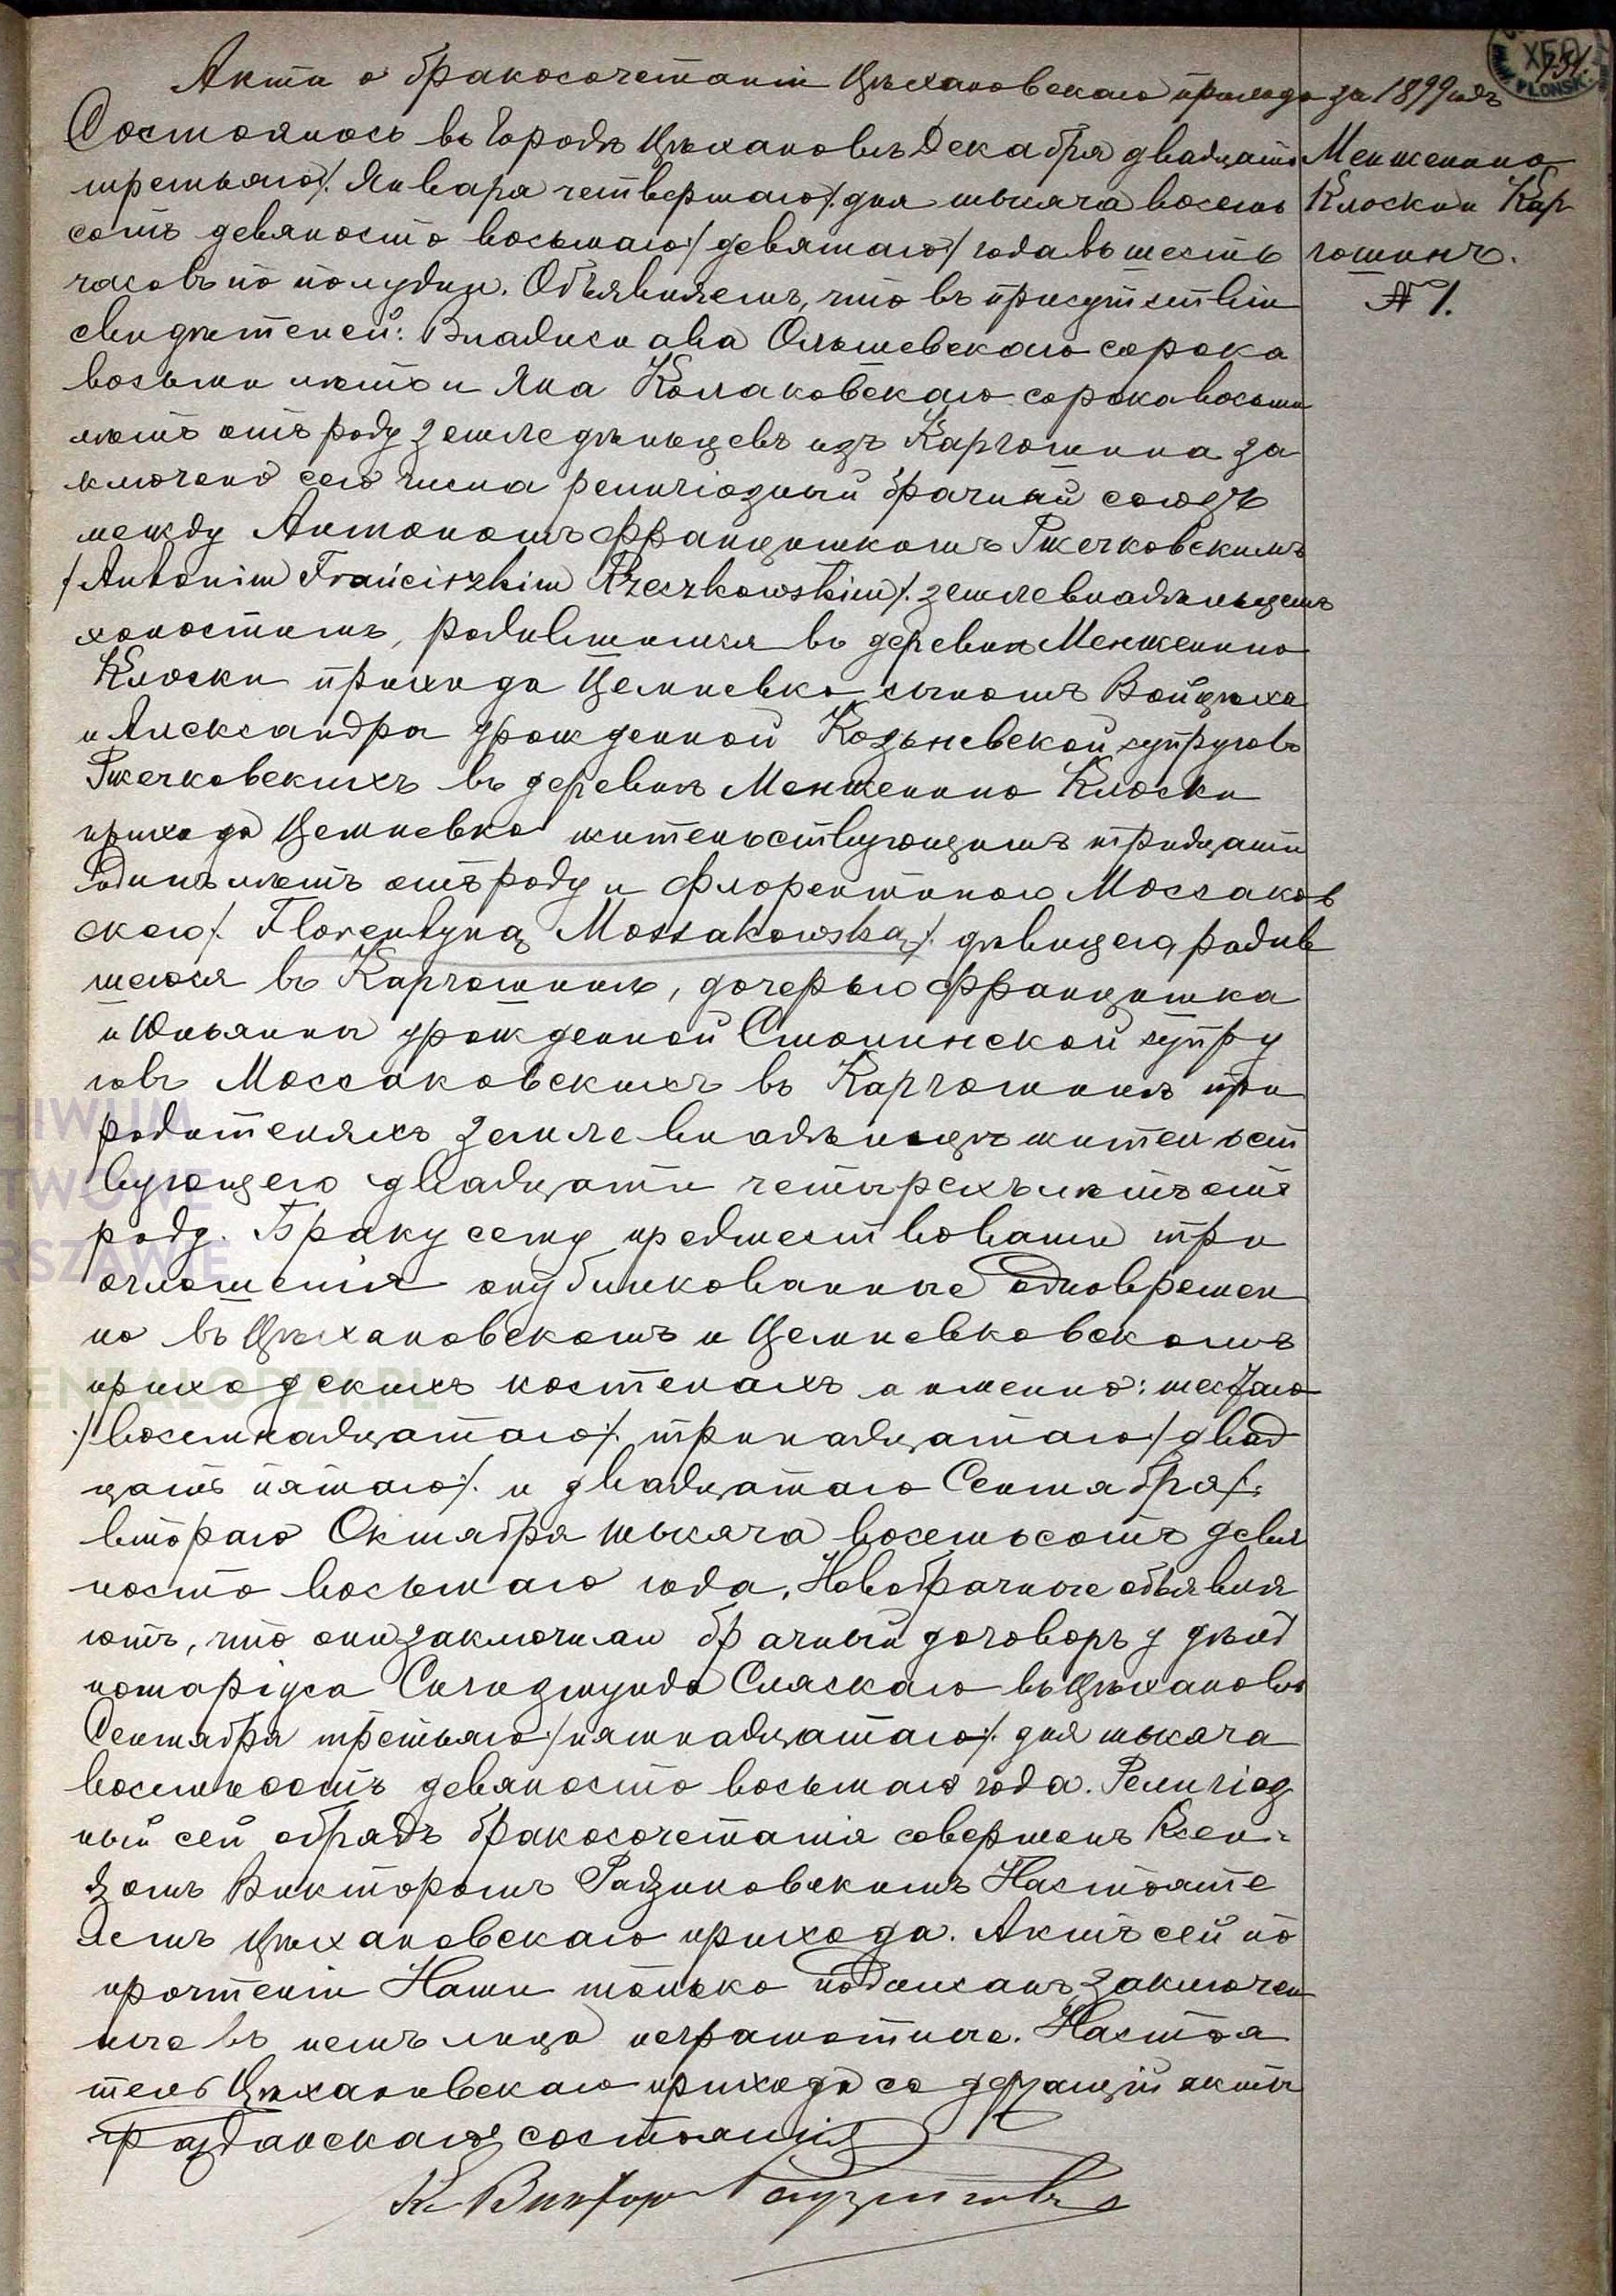 Акты о бракосочетаніи Цѣхановскаго прихода за 1899 годъ
Состоялось въ Городѣ Цѣхановѣ Декабря двадцать
третьяго /:Января четвертаго:/ дня тысяча восемь
сотъ девяносто восьмаго /девятаго/ года въ шесть
часовъ по полудни. Объявляемъ, что въ присутствіи
свидѣтелей: Владислава Ольшевскаго сорока
восьми лѣтъ и Яна Колаковскаго сорока восьми
лѣтъ отъ роду земледѣльцевъ изъ Каргошина за
ключенъ сего числа религіозный брачный союзъ
между Антономъ Францишкомъ Ржечковскимъ
/Antonim Franciszkim Rzeczkowskim/. землевладѣльцемъ
холостымъ, родившимся въ деревни Менженино
Клоски прихода Цемневко сыномъ Войцѣха
и Александра урожденной Козьневской супруговъ
Ржечковскихъ въ деревнѣ Менженино Клоски
прихода Цемневко жительствующимъ тридцати
одинъ лѣтъ отъ роду и Флорентиною Моссаков
скою /. Florentyną Mossakowską /. дѣвицею, родив
шеюся въ Каргошинѣ, дочерью Францишка
и Юльянны урожденной Смолинской супру
говъ Моссаковскихъ въ Каргошинѣ при
родителяхъ землевладѣльцѣ жительст
вующею двадцати четырехъ лѣтъ отъ
роду. Браку сему предшествовали три
оглашенія опубликованные одновремен
но въ Цѣхановскомъ и Цемневковскомъ
приходскихъ костелахъ а именно: шестаго
/восемнадцатаго/. тринадцатаго /двад
цать пятаго/. и двадцатаго Сентября /:
втораго Октября тысяча восемьсотъ девя
носто восьмаго года. Новобрачные объявля
ютъ, что они заключили брачный договоръ у
нотаріуса Сигизмунда Сляскаго въ Цѣхановѣ
Сентября третьяго /пятнадцатаго/. дня тысяча
восемьсотъ девяносто восьмаго года. Религіоз
ный сей обрядъ бракосочетанія совершенъ Ксен-
дзомъ Викторомъ Радзиковскимъ Настояте
лемъ Цѣхановскаго прихода. Актъ сей по
прочтеніи Нами только подписанъ, заключен
ные въ немъ лица неграмотные. Настоя
тель Цѣхановскаго прихода содержащій акты
гражданскаго состоянія
Кс. Виктор
Менженино
Клоски Кар
гошинъ.
№ 1.
PŁOŃSK